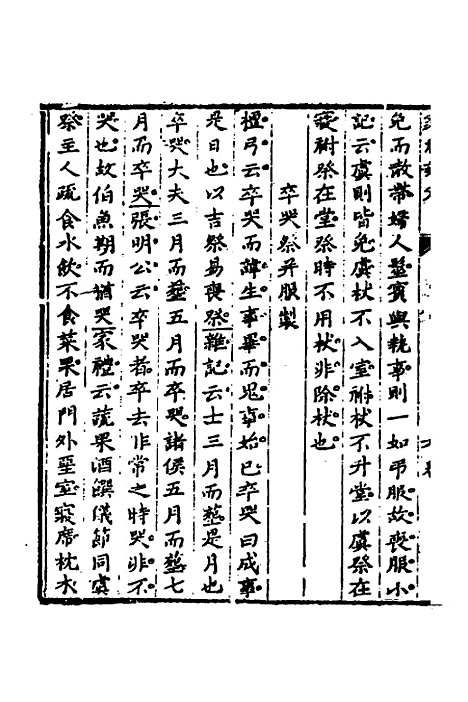 免而散帶婦人髽賓與執事則一如弔服故喪服小
記云虞則皆免虞杖不入室祔杖不升堂以虞祭在
寢祔祭在堂祭時不用杖非除杖也
卒哭祭并服製
檀弓云卒哭而諱生事畢而鬼事始已卒哭曰成事
是日也以吉祭易喪祭雜記云士三月而塟是月也
卒哭大夫三月而塟五月而卒哭諸侯五月而塟七
月而卒哭張明公云卒哭者卒去非常之時哭非不
哭也故伯魚期而猶哭家禮云蔬果酒饌儀節同虞
祭主人疏食水飲不食菜果居門外堊室寢席枕木